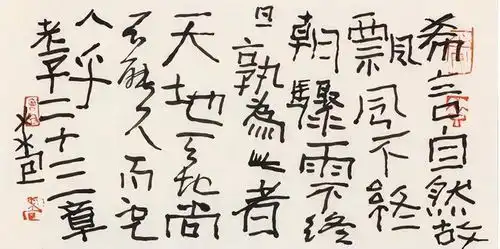 希言自然故
飄風不終
朝驟雨不终
日孰為此者
天地天地尚
不能久而况
人乎
老子二十三章